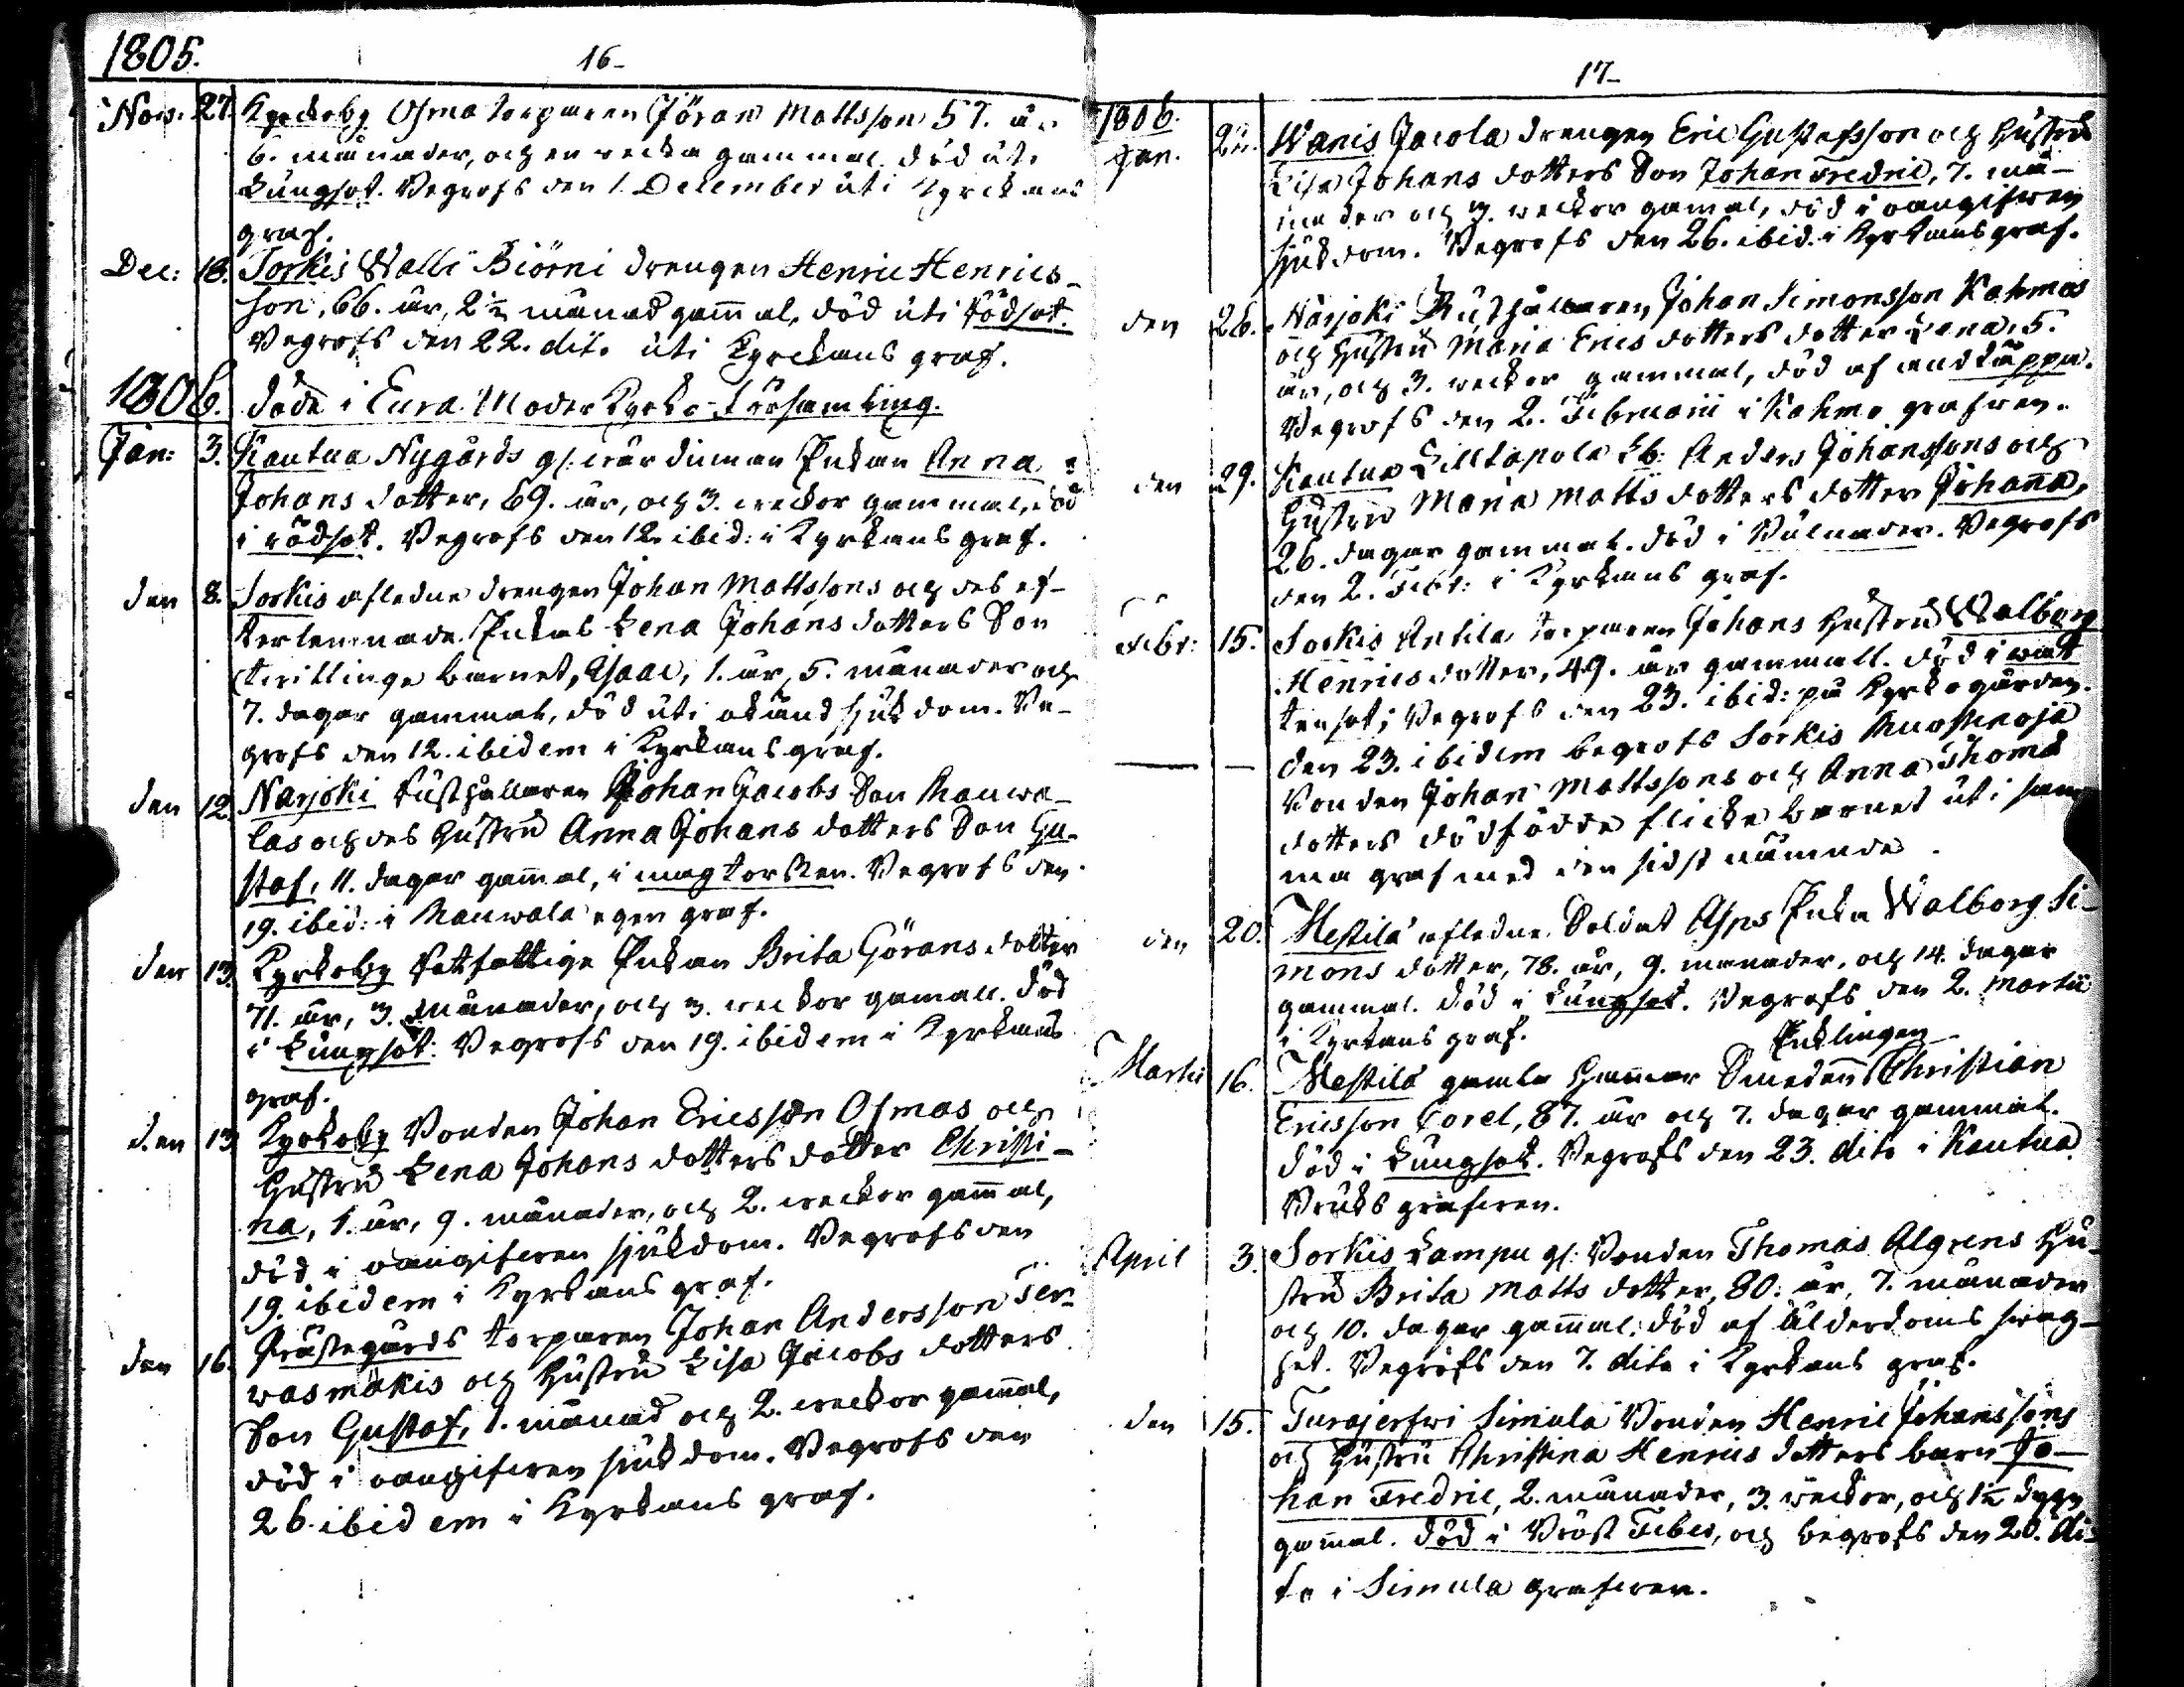 1805.
16-
Nov: 27. Kyrckoby Osma torparen Jöran Mattsson 57. år
6. månader, och en wecka gammal. död uti
Lungsot. Begrofs den 1. December uti Kyrckans
graf.
Dec: 18. Sorkis Walli Biörni drengen Henric Henrics-
son, 66. år, 2½ månad gam̄al, död uti Rödsot.
Begrofs den 22. dito uti Kyrckans graf.
1806. döde i Eura Moder Kyrko-Församling.
Jan: 3. Kautua Nygårds gl: Enkan Anna
Johans dotter, 69. år, och 3. weckor gammal, död
i rödsot. Begrofs den 12. ibid: i Kyrkans graf.
den 8. Sorkis afledne drengen Johan Mattssons och des ef-
terlemnade Enkas Lena Johans dotters Son
trillinge barnet, Isaac, 1. år, 5. månader och
7. dagar gammal, död uti okänd sjukdom. Be-
grofs den 12. ibidem i Kyrkans graf.
den 12. Narjoki Rusthållaren Johan Jacobs Son Mauwa-
las och des Hustru Anna Johans dotters Son Gu-
staf, 11. dagar gam̄al, i magtorsken. Begrofs den
19. ibid: i Mauwala egen graf.
den 13. Kyrkoby Rotfattige Enkan Brita Görans dotter
71. år, 3. månader, och 3. weckor gamall. död
i Lungsot: Begrofs den 19. ibidem i Kyrkans
graf.
den 13. Kyrkoby Bonden Johan Ericsson Osmas och
Hustru Lena Johans dotters dotter Christi-
na, 1. år, 9. månader, och 2. weckor gam̄al,
död i oangifwen sjukdom. Begrofs den
19. ibidem i Kyrkans graf.
den 16. Prästegårds torparen Johan Andersson Ter-
wasmäkis och Hustru Lisa Jacobs dotters
Son Gustaf, 1. månad och 2. weckor gam̄al,
död i oangifwen sjukdom. Begrofs den
26. ibidem i Kyrkans graf.
17-
1806.
Jan. 22. Wanis Jacola drengen Eric Gustafsson och Hustru
Lisa Johans dotters Son Johan Fredric, 7. må-
nader och 3. weckor gamal, död i oangifwen
sjukdom. Begrofs den 26. ibid. i Kyrkans graf.
den 26. Närjoki Rusthållaren Johan Simonsson Kahmas
och Hustru Maria Erics dotters dotter Lena, 5.
år, och 3. weckor gammal, död af andtäppa.
Begrofs den 2. Februarii i Kahma grafwen.
den 29. Kautua Lilltapola Anders Johanssons och
Hustru Maria Matts dotters dotter Johan̄a,
26. dagar gammal. död i Bulnader. Begrofs
den 2. Febr: i Kyrkans graf.
Febr: 15. Sorkis Antila torparen Johans Hustru Walborg
Henrics dotter, 49. år gammall. död i wat
tensot; Begrofs den 23. ibid: på Kyrkogården.
— — den 23. ibidem begrofs Sorkis
Bonden Johan Mattssons och Anna Thomas
dotters dödfödde flicke barnet uti sam
ma graf med den sidst nämnde.
den 20. Mestilä afledne Soldat Asps Enka Walborg Si-
mons dotter, 78. år, 9. månader, och 14. dagar
gammal. död i Lungsot. Begrofs den 2. Martii
i Kyrkans graf.
Enklingen
Martii 16. Mestilä gamla Ham̄ar Smeden Christian
Ericsson Corel, 87. år och 7. dagar gammal.
död i Lungsot. Begrofs den 23. dito i Kautua
Bruks grafwen.
April 3. Sorkis Lampu gl: Bonden Thomas Algrens Hu-
stru Brita Matts dotter, 80. år, 7. månader
och 10. dagar gam̄al: död af ålderdoms swag-
het. Begrofs den 7. dito i Kyrkans graf.
den 15. Turajerfwi Simula Bonden Henric Johanssons
och Hustru Christina Henrics dotters barn Jo-
han Fredric, 2. månader, 3. weckor, och 1½ dygn
gam̄al. död i Bröst Feber, och begrofs den 20. di-
to i Simula grafwen.